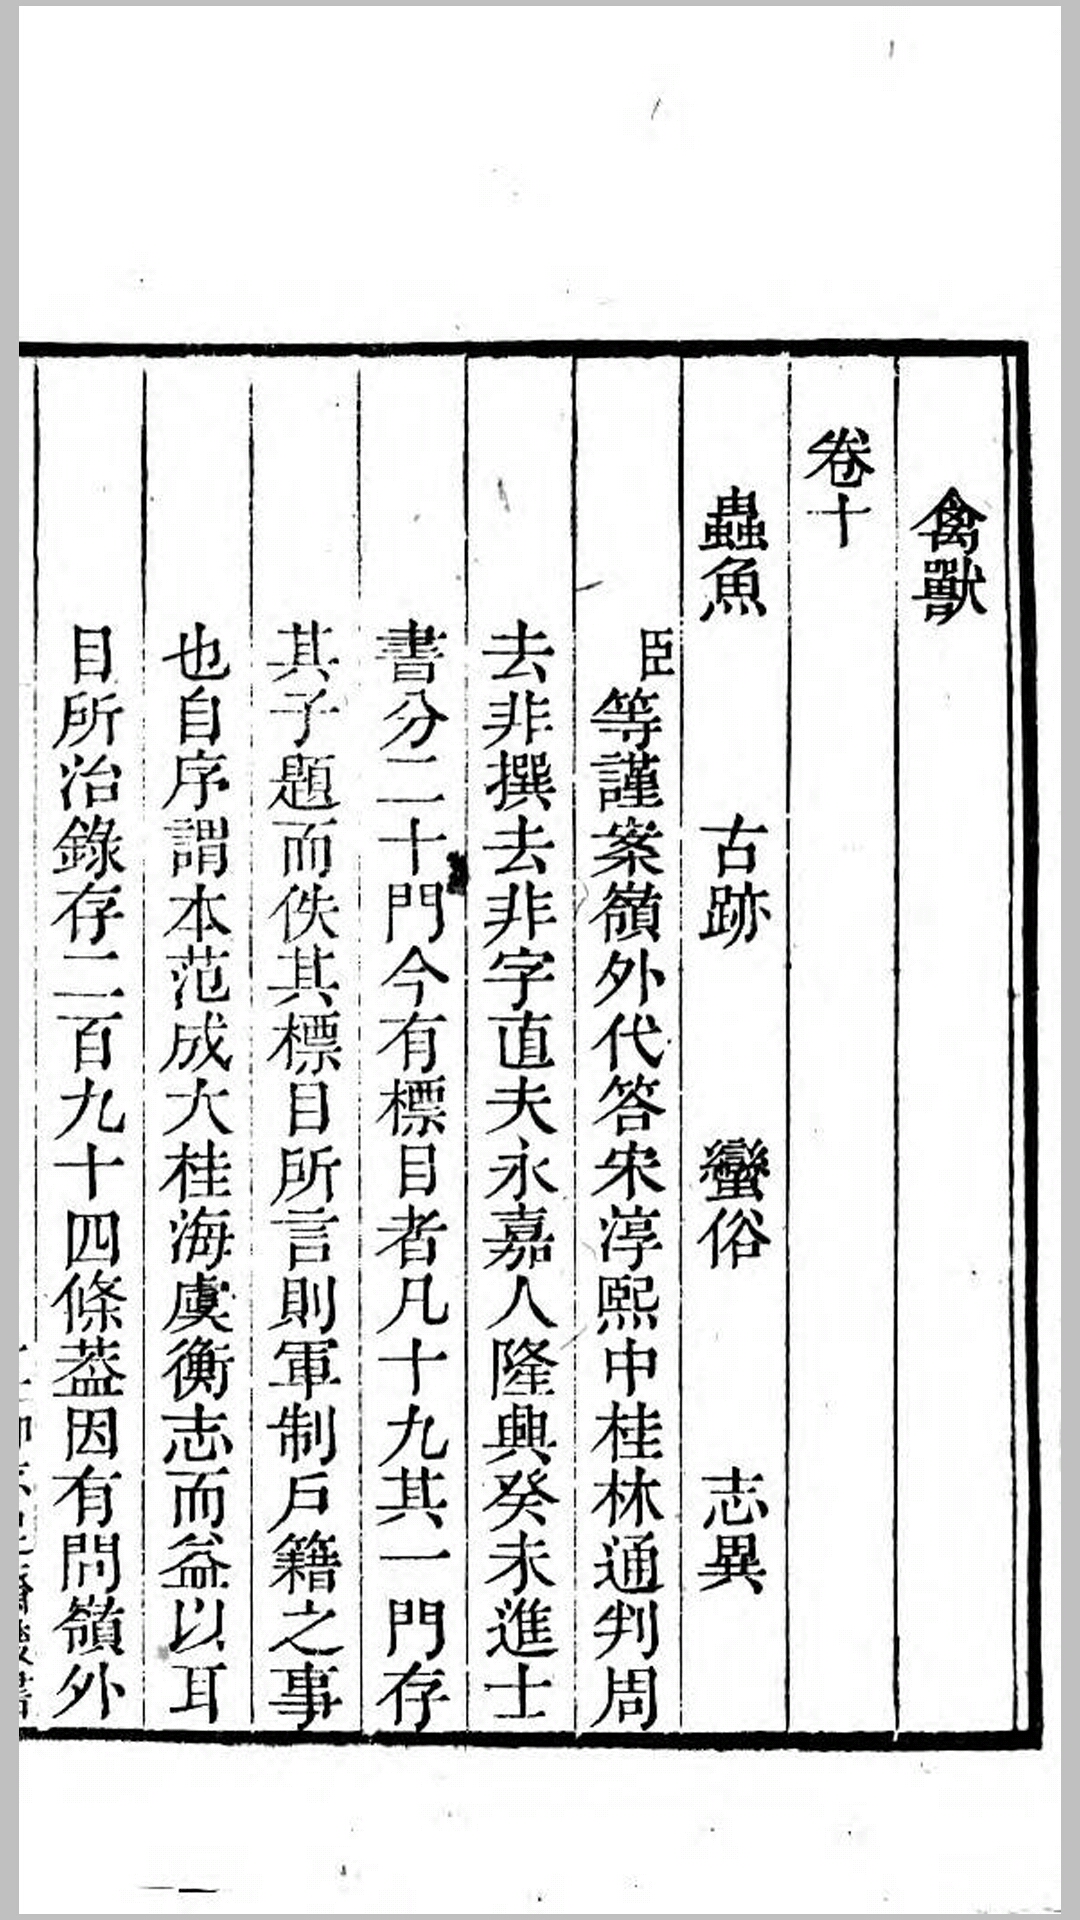 禽獸
卷十
蟲魚 古跡 蠻俗 志異
臣等謹案嶺外代答宋淳熙中桂林通判周
去非撰去非字直夫永嘉人隆興癸未進士
書分二十門今有標目者凡十九其一門存
其子題而佚其標目所言則軍制戶籍之事
也自序謂本范成大桂海虞衡志而益以耳
目所治錄存二百九十四條葢因有問嶺外